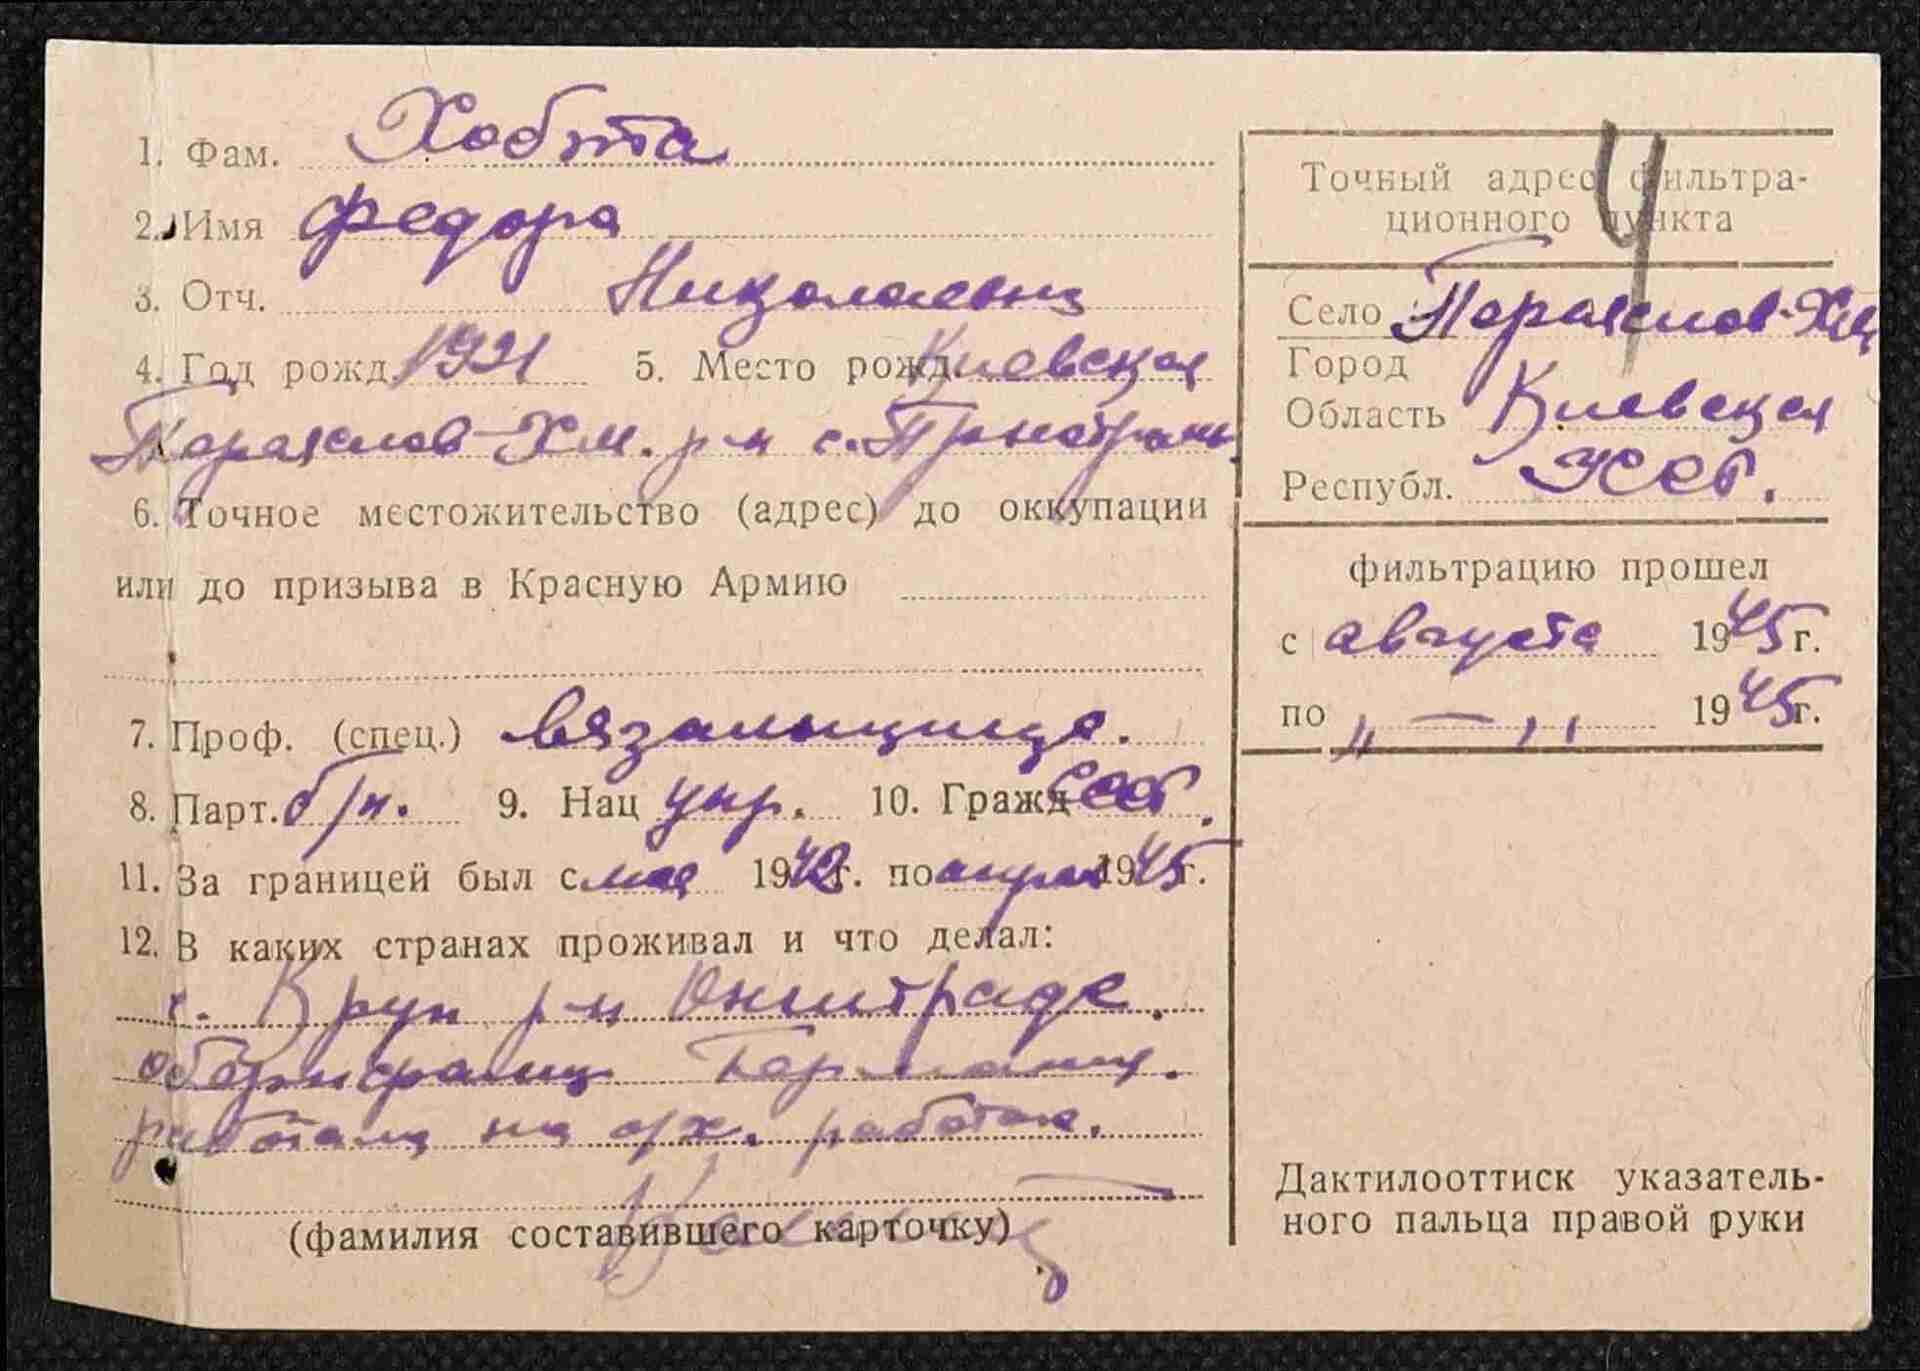 1. Фам. Хобта
2. Имя Федора
3. Отч. Николаевна
4. Год рожд. 1921 5. Место рожд. Киевская
Переяслов-Хм. р-н с.
6. Точное местожительство (адрес) до оккупации
или до призыва в Красную Армию
7. Проф. (спец.) вязальщица.
8. Парт. б/п. 9. Нац укр. 10. Гражд СССР.
11. За границей был с мая 1942 г. по апрель 1945 г.
12. В каких странах проживал и что делал:
р-н
Германии.
работала на с/х. работах.
(фамилия составившего карточку)
4
Точный адрес фильтра-
ционного пункта
Село Переяслов-Хм
Город
Область Киевская
Республ. УССР.
фильтрацию прошел
с августа 1945 г.
по „ — „ 1945 г.
Дактилооттиск указатель-
ного пальца правой руки